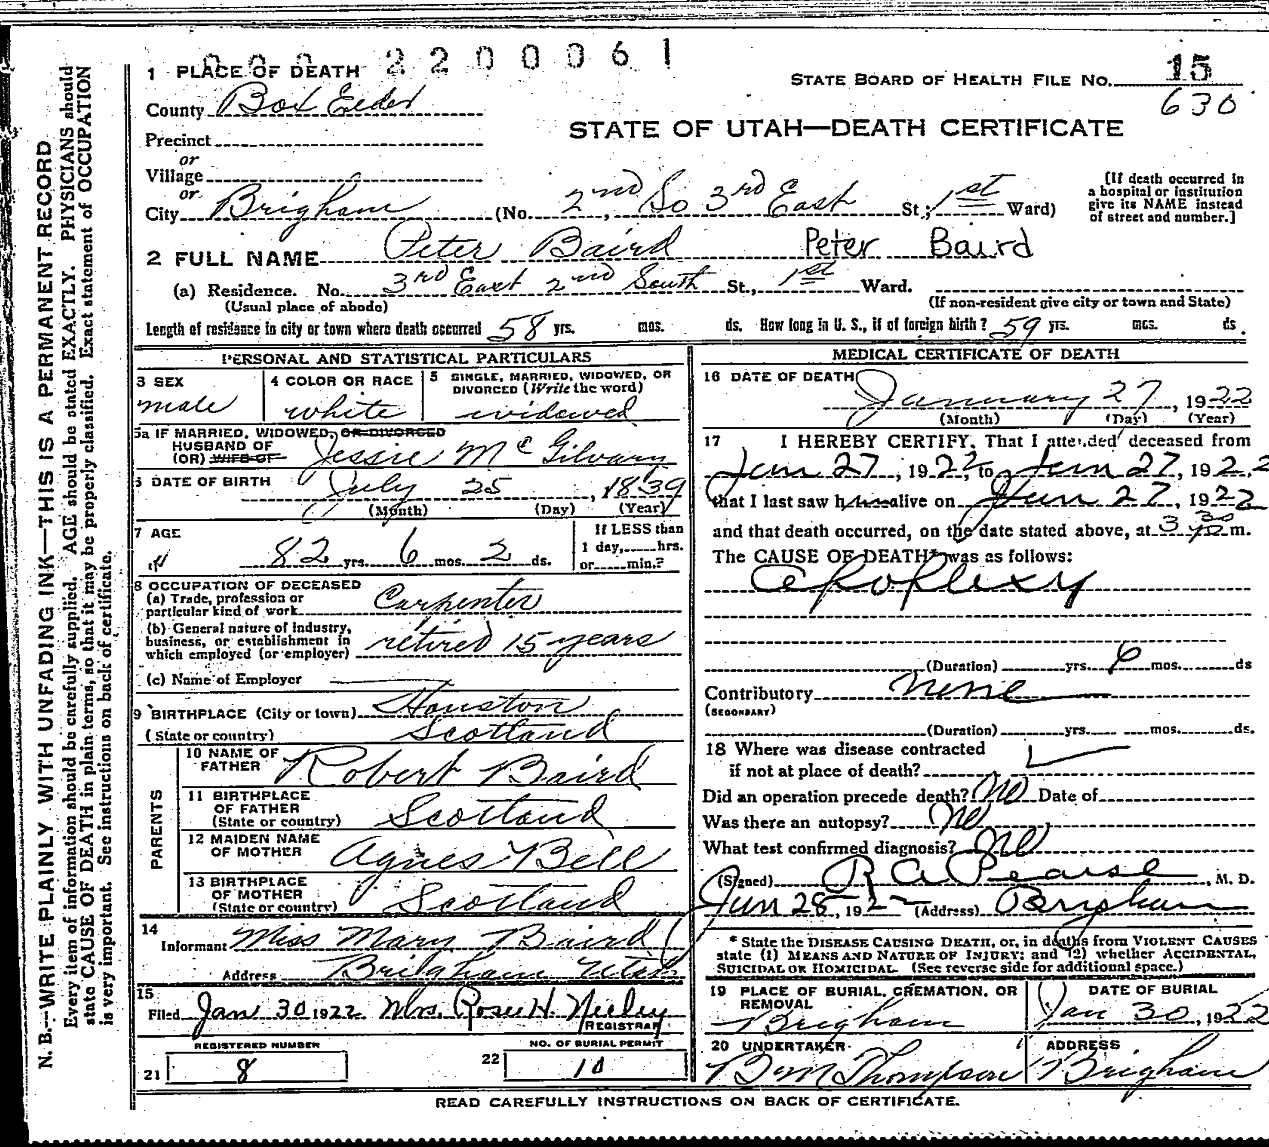 000 2200061
1 PLACE OF DEATH
STATE BOARD OF HEALTH FILE NO. 15
630
County Box Elder
STATE OF UTAH—DEATH CERTIFICATE
Precinct
or
Village
or
City Brigham (No. 2nd So 3rd East St; 1st Ward)
[If death occurred in a hospital or institution give its NAME instead of street and number.]
2 FULL NAME Peter Baird Peter Baird
(a) Residence. No. 3rd East 2nd South St., 1st Ward.
(Usual place of abode) (If non-resident give city or town and State)
Length of residence in city or town where death occurred 58 yrs. mos. ds. How long in U. S., if of foreign birth? 59 yrs. mos. ds.
PERSONAL AND STATISTICAL PARTICULARS
3 SEX
male
4 COLOR OR RACE
white
5 SINGLE, MARRIED, WIDOWED, OR DIVORCED (Write the word)
widowed
5a IF MARRIED, WIDOWED, OR DIVORCED
HUSBAND OF
(OR) WIFE OF Jessie McGilvary
6 DATE OF BIRTH July 25, 1839
(Month) (Day) (Year)
7 AGE
82 yrs. 6 mos. 2 ds.
If LESS than
1 day, hrs.
or min.?
8 OCCUPATION OF DECEASED
(a) Trade, profession or
particular kind of work Carpenter
(b) General nature of Industry,
business, or establishment in
which employed (or employer) retired 15 years
(c) Name of Employer
9 BIRTHPLACE (City or town) Houston
(State or country) Scotland
PARENTS
10 NAME OF
FATHER Robert Baird
11 BIRTHPLACE
OF FATHER
(State or country) Scotland
12 MAIDEN NAME
OF MOTHER Agnes Bell
13 BIRTHPLACE
OF MOTHER
(State or country) Scotland
14
Informant Miss Mary Baird
Address Brigham Utah
15
Filed Jan 30 1922 Mrs. Rose H. Neeley
REGISTRAR
REGISTERED NUMBER
21 8
NO. OF BURIAL PERMIT
22 10
MEDICAL CERTIFICATE OF DEATH
16 DATE OF DEATH
January 27, 1922
(Month) (Day) (Year)
17 I HEREBY CERTIFY, That I attended deceased from
Jan 27, 1922 to Jan 27, 1922
that I last saw him alive on Jan 27, 1922
and that death occurred, on the date stated above, at 3 30 m.
The CAUSE OF DEATH* was as follows:
Apoplexy
(Duration) yrs. 6 mos. ds
Contributory None
(SECONDARY)
(Duration) yrs. mos. ds.
18 Where was disease contracted
if not at place of death?
Did an operation precede death? No Date of
Was there an autopsy? No
What test confirmed diagnosis? No
(Signed) R A Pearse, M. D.
Jan 28, 1922 (Address) Brigham
* State the DISEASE CAUSING DEATH, or, in deaths from VIOLENT CAUSES
state (1) MEANS AND NATURE OF INJURY; and (2) whether ACCIDENTAL,
SUICIDAL OR HOMICIDAL. (See reverse side for additional space.)
19 PLACE OF BURIAL, CREMATION, OR
REMOVAL
Brigham
DATE OF BURIAL
Jan 30, 1922
20 UNDERTAKER
B M Thompson
ADDRESS
Brigham
READ CAREFULLY INSTRUCTIONS ON BACK OF CERTIFICATE.
N. B.—WRITE PLAINLY, WITH UNFADING INK—THIS IS A PERMANENT RECORD
Every item of information should be carefully supplied. AGE should be stated EXACTLY. PHYSICIANS should
state CAUSE OF DEATH in plain terms, so that it may be properly classified. Exact statement of OCCUPATION
is very important. See instructions on back of certificate.